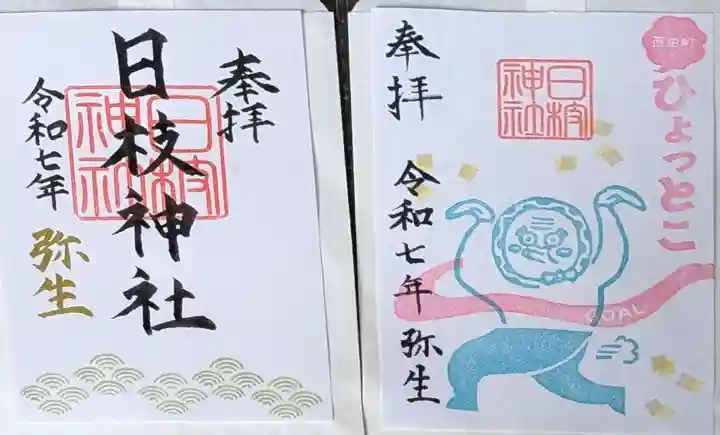 奉拝
日枝神社
日枝
神社
令和七年
弥生
西田町
ひょっとこ
日枝
神社
奉拝
令和七年 弥生
GOAL